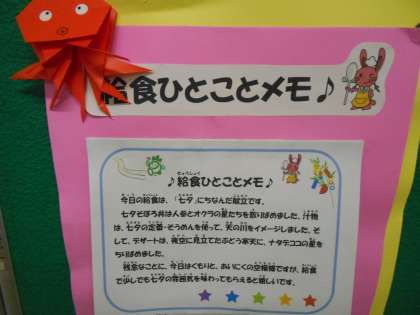 給食ひとことメモ♪
♪給食ひとことメモ♪
今日の給食は、「七夕」にちなんだ献立です。
七夕そぼろ丼は人参とオクラの星たちを散りばめました。汁物
は、七夕の定番・そうめんを使って、天の川をイメージしました。そ
して、デザートは、夜空に見立てたぶどう寒天に、ナタデココの星を
ちりばめました。
残念なことに、今日はくもりと、あいにくの空模様ですが、給食
で少しでも七夕の雰囲気を味わってもらえると嬉しいです。